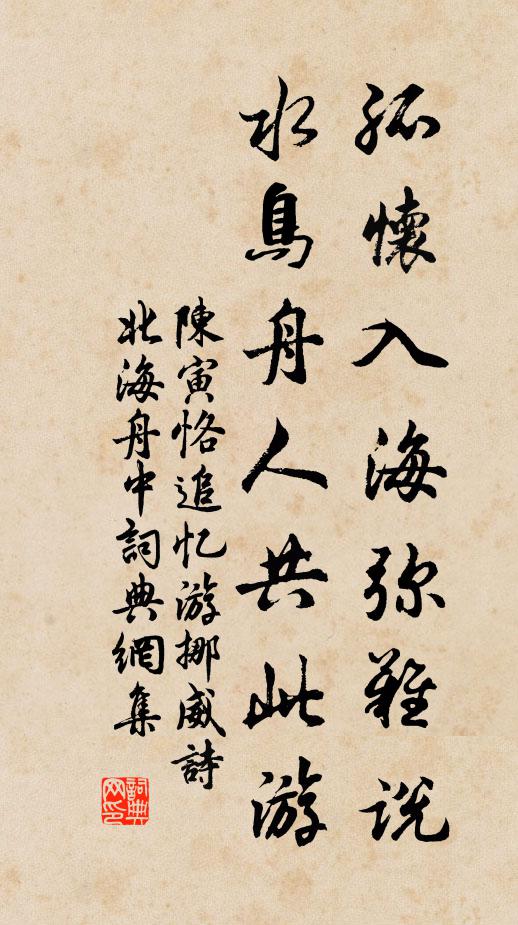 孤懷入海弥難説
水鳥舟人共此游
陳寅恪追忆游挪威詩
北海舟中詞典網集
詞典
网印